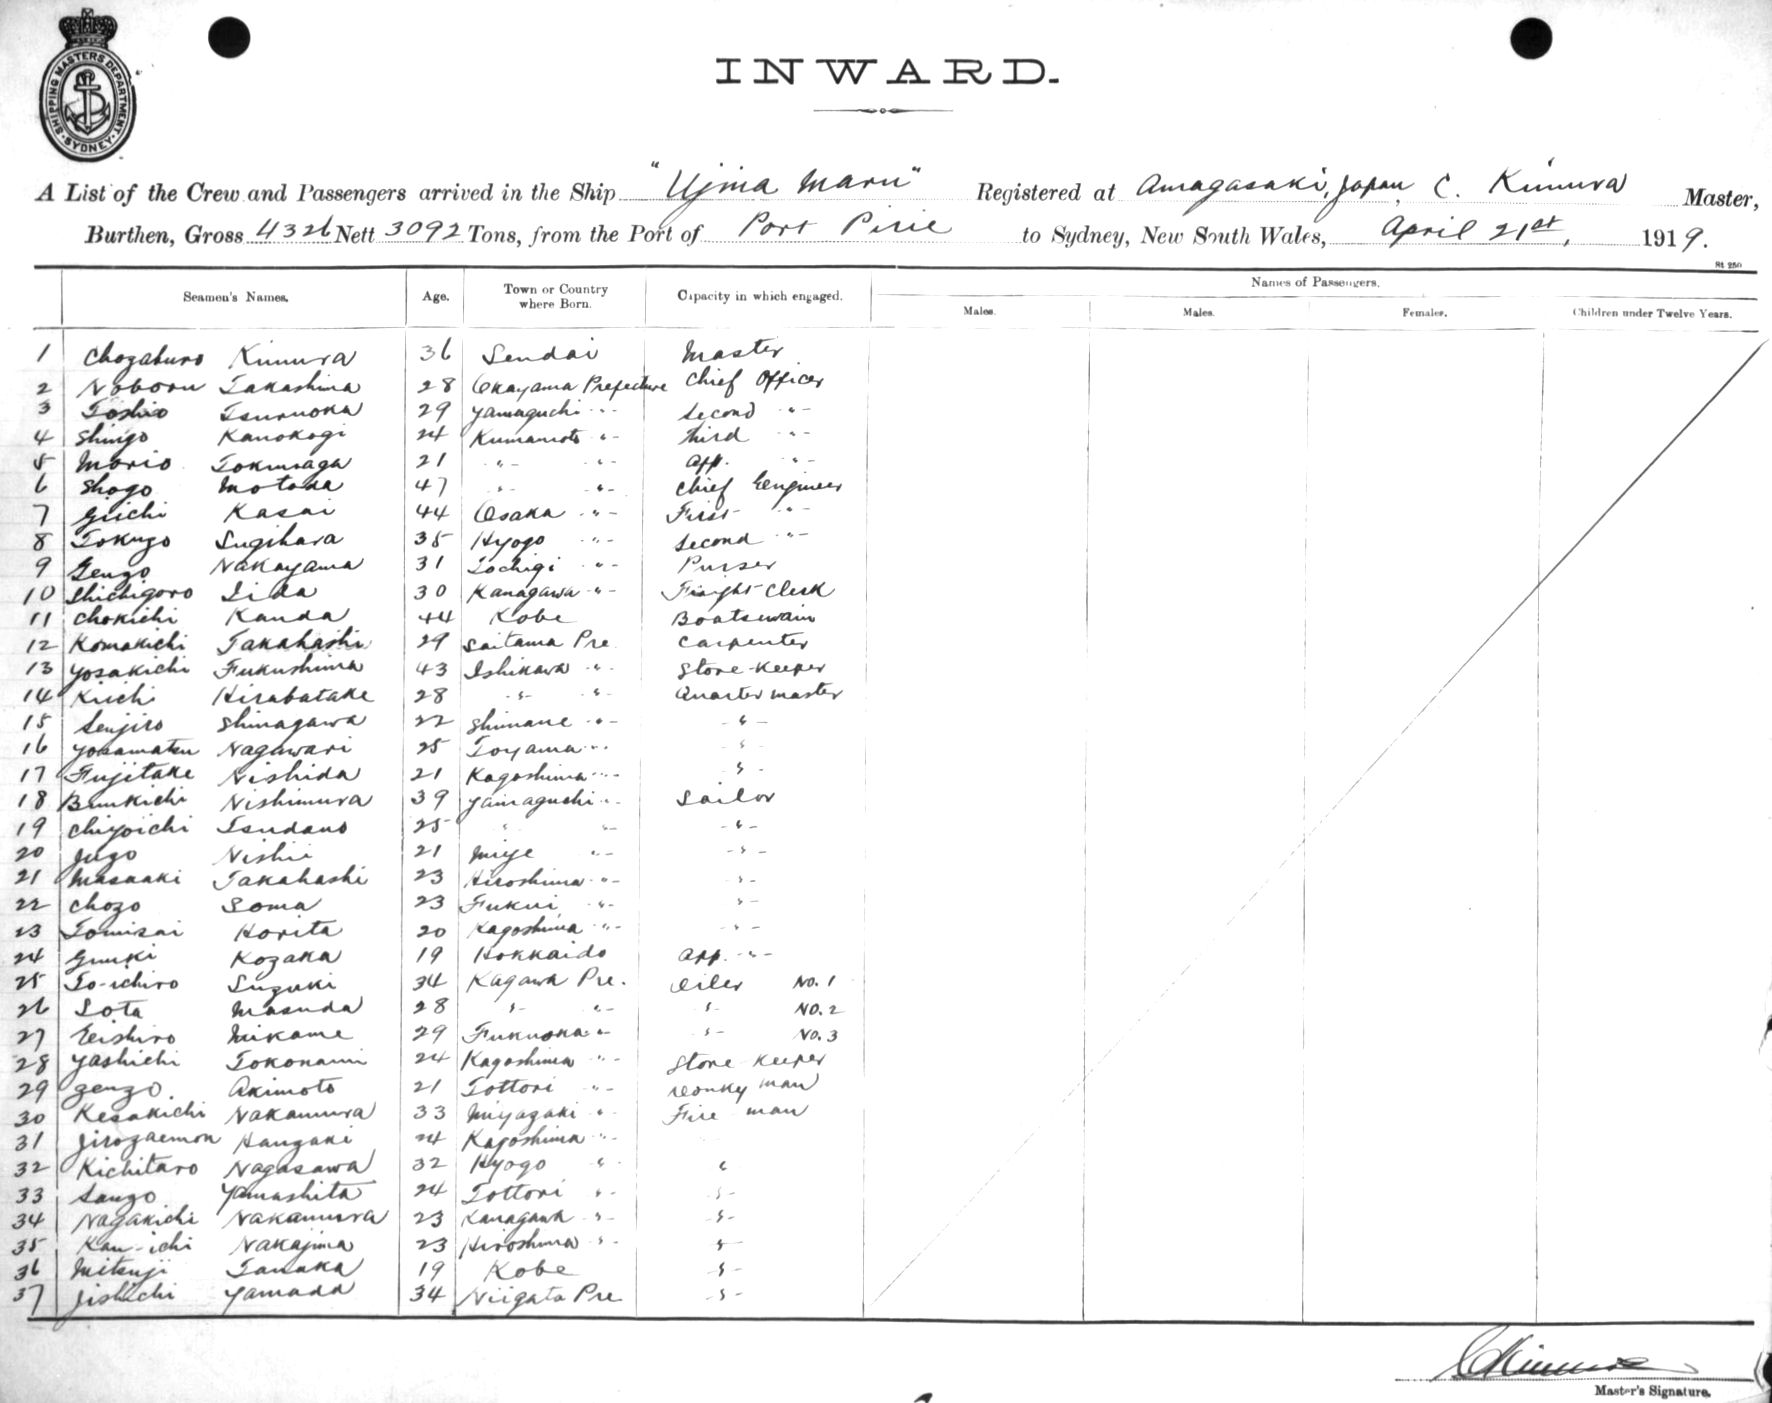 SHIPPING MASTERS DEPARTMENT
SYDNEY
INWARD.
A List of the Crew and Passengers arrived in the Ship "Ujina Maru" Registered at Amagasaki, Japan, C. Kimura Master,
Burthen, Gross 4326 Nett 3092 Tons, from the Port of Port Pirie to Sydney, New South Wales, April 21st, 1919.
St 250
Seamen's Names. Age. Town or Country where Born. Capacity in which engaged. Names of Passengers.
Males. Males. Females. Children under Twelve Years.
1 Chozaburo Kimura 36 Sendai Master
2 Noboru Takashina 28 Okayama Prefecture Chief Officer
3 Toshio Tsuruoka 29 Yamaguchi "- Second "-
4 Shingo Kanokogi 24 Kumamoto "- Third "-
5 Morio Tokunaga 21 "- "- App. "-
6 Shogo Motoda 47 "- "- Chief Engineer
7 Giichi Kasai 44 Osaka "- First "-
8 Tokuzo Sugihara 35 Hyogo "- Second "-
9 Genzo Nakayama 31 Tochigi "- Purser
10 Shichigoro Iida 30 Kanagawa "- Freight Clerk
11 Chokichi Kanda 44 Kobe Boatswain
12 Komakichi Takahashi 29 Saitama Pre. Carpenter
13 Yosakichi Fukushima 43 Ishikawa "- Store-keeper
14 Kiichi Hirabatake 28 "- "- Quarter master
15 Senjiro Shinagawa 22 Shimane "- "-
16 Yosamatsu Nagawari 25 Toyama "- "-
17 Fujitake Nishida 21 Kagoshima "- "-
18 Bunkichi Nishimura 39 Yamaguchi "- Sailor
19 Chiyoichi Tsudano 25 " "- "-
20 Jugo Nishii 21 Miye "- "-
21 Masaaki Takahashi 23 Hiroshima "- "-
22 Chozo Soma 23 Fukui "- "-
23 Tomisai Horita 20 Kagoshima "- "-
24 Gunki Kozaka 19 Hokkaido App. "-
25 To-ichiro Suzuki 34 Kagawa Pre. Oiler No. 1
26 Sota Masuda 28 "- "- "- No. 2
27 Eishiro Mikame 29 Fukuoka "- "- No. 3
28 Yashichi Tokonami 24 Kagoshima "- Store keeper
29 Zenzo. Akimoto 21 Tottori "- Donkey man
30 Kesakichi Nakamura 33 Miyazaki " Fire man
31 Jirozaemon Kanzaki 24 Kagoshima "-
32 Kichitaro Nagasawa 32 Hyogo " "
33 Sanzo Yamashita 24 Tottori "- "-
34 Nagakichi Nakamura 23 Kanagawa "- "-
35 Kan-ichi Nakajima 23 Hiroshima "- "-
36 Mitsuji Tanaka 19 Kobe "-
37 Jishichi Yamada 34 Niigata Pre "-
C Kimura
Master's Signature.